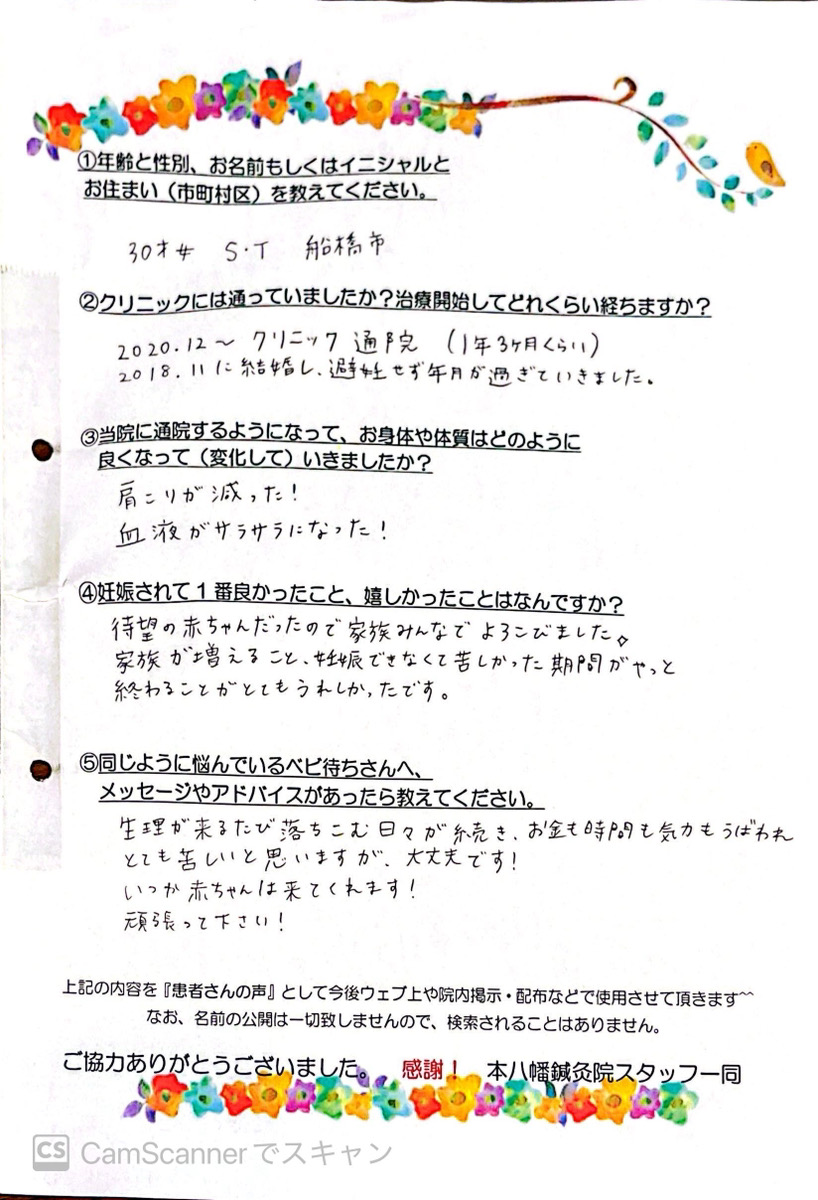 ①年齢と性別、お名前もしくはイニシャルと
お住まい（市町村区）を教えてください。
30才女 S・T 船橋市
②クリニックには通っていましたか？治療開始してどれくらい経ちますか？
2020.12～ クリニック通院 （1年3ヶ月くらい）
2018.11に結婚し、避妊せず年月が過ぎていきました。
③当院に通院するようになって、お身体や体質はどのように
良くなって（変化して）いきましたか？
肩こりが減った！
血液がサラサラになった！
④妊娠されて１番良かったこと、嬉しかったことはなんですか？
待望の赤ちゃんだったので家族みんなでよろこびました。
家族が増えること、妊娠できなくて苦しかった期間がやっと
終わることがとてもうれしかったです。
⑤同じように悩んでいるベビ待ちさんへ、
メッセージやアドバイスがあったら教えてください。
生理が来るたび落ちこむ日々が続き、お金も時間も気力もうばわれ
とても苦しいと思いますが、大丈夫です！
いつか赤ちゃんは来てくれます！
頑張って下さい！
上記の内容を『患者さんの声』として今後ウェブ上や院内掲示・配布などで使用させて頂きます^^
なお、名前の公開は一切致しませんので、検索されることはありません。
ご協力ありがとうございました。 感謝！ 本八幡鍼灸院スタッフ一同
CS CamScannerでスキャン